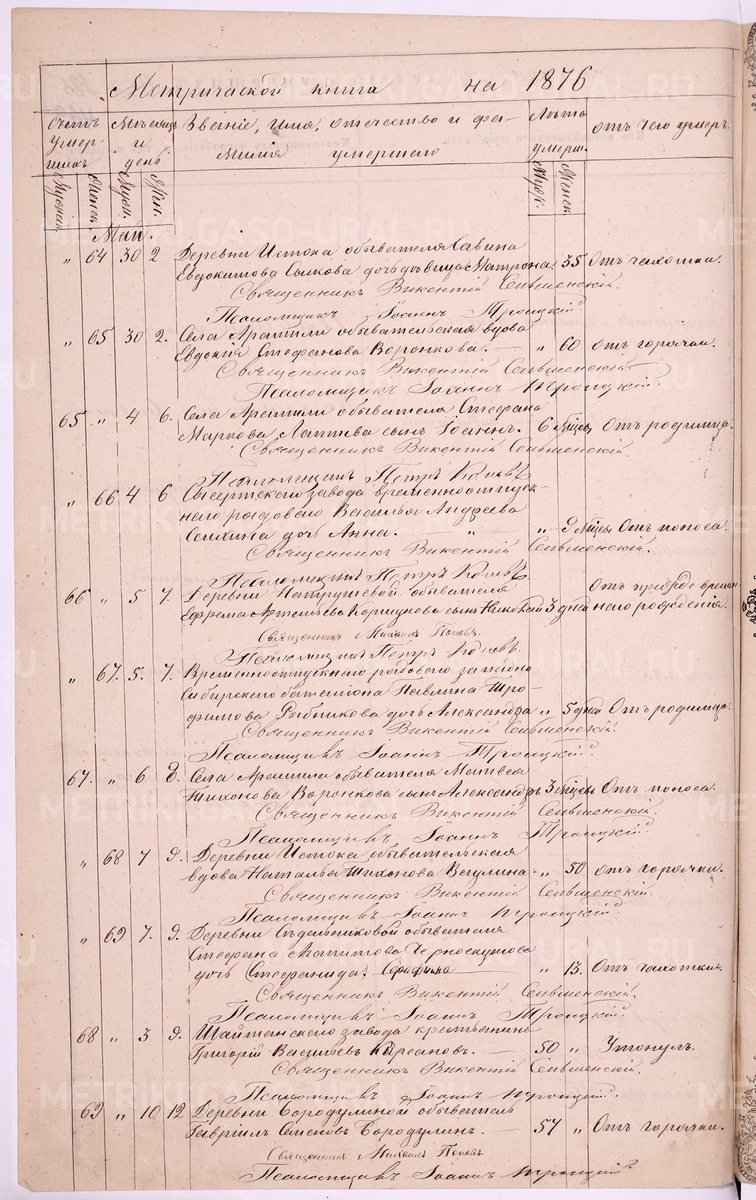 Метрической книга на 1876
Счетъ умер- шихъ Мѣсяцъ и день Званіе, имя, отечество и фа- Лѣта умерш. отъ чего умеръ.
милія умершаго
Мужск. Женск. Муж. Жен. Мужс. Женск.
Май.
" 64 30 2 Деревни Истока обывателя Савина
Евдокимова сылкова дочь дѣвица Матрона. 35 Отъ чахотки.
Священникъ Викентій Сельменскій.
Псаломщикъ Іоаннъ Троицкій
" 65 30 2. Села Арамили обывательская вдова
Евдокія Стефанова Воронкова. " 60 отъ горячки.
Священникъ Викентій Сельменскій.
Псаломщикъ Іоаннъ Троицкій.
65 " 4 6. Села Арамили обывателя Стефана
Маркова Лаптева сынъ Іоаннъ. 6 мѣсяц. Отъ родимца.
Священникъ Викентій Сельменскій.
Псаломщикъ Петръ Поповъ
" 66 4 6 Сысертскаго завода временноотпуск-
наго рядоваго Василья Андреева
дочь Анна. " " 9 мѣсяцы Отъ поноса.
Священникъ Викентій Сельменскій.
Псаломщикъ Петръ Поповъ
66 " 5 7. Деревни Патрушевой обывателя Отъ преждевремен-
Ефрема Артемьева Коршунова сынъ Николай 3 дней наго рожденія.
Священникъ Михаилъ Поповъ.
Псаломщикъ Петръ Поповъ.
" 67. 5. 7. Временноотпускнаго рядоваго западно
Сибирскаго баталіона Павлина Тро-
фимова Рыбникова дочь Александра " 5 дней Отъ родимца.
Священникъ Викентій Сельменскій.
Псаломщикъ Іоаннъ Троицкій.
67. " 6 8. Села Арамили обывателя Матвея
Тихонова Воронкова сынъ Александръ 3 мѣсяцы Отъ поноса.
Священникъ Викентій Сельменскій.
Псаломщикъ Іоаннъ Троицкій.
" 68 7 9. Деревни Истока обывательская
вдова Наталья Тихонова " 50 отъ горячки.
Священникъ Викентій Сельменскій.
Псаломщикъ Іоаннъ Троицкій.
" 69 7. 9. Деревни Сѣдельниковой обывателя
Стефана Черноскутова
дочь Стефанида. " 13. Отъ чахотки.
Священникъ Викентій Сельменскій.
Псаломщикъ Іоаннъ Троицкій.
68 " 3 9. Шайтанскаго завода крестьянинъ
Григорій Васильевъ Кирсановъ. 50 " Утонулъ.
Священникъ Викентій Сельменскій.
Псаломщикъ Іоаннъ Троицкій.
69 " 10 12 Деревни Бородулиной обыватель
Гавріилъ Семеновъ Бородулинъ. 57 " Отъ горячки.
Священникъ Михаилъ Поповъ.
Псаломщикъ Іоаннъ Троицкій.
METRIKI.GASO-URAL.RU